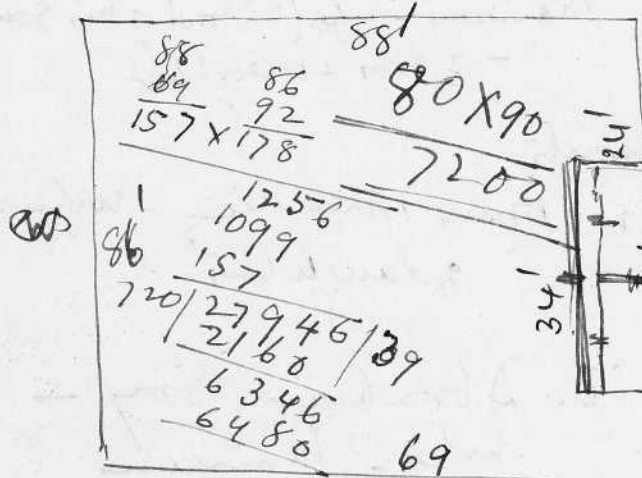 88'
88
69
157 x 178
86
92
80 x 90
7200
1256
1099
157
86'
720/27946/39
2160
6346
6480
69
24'
34'